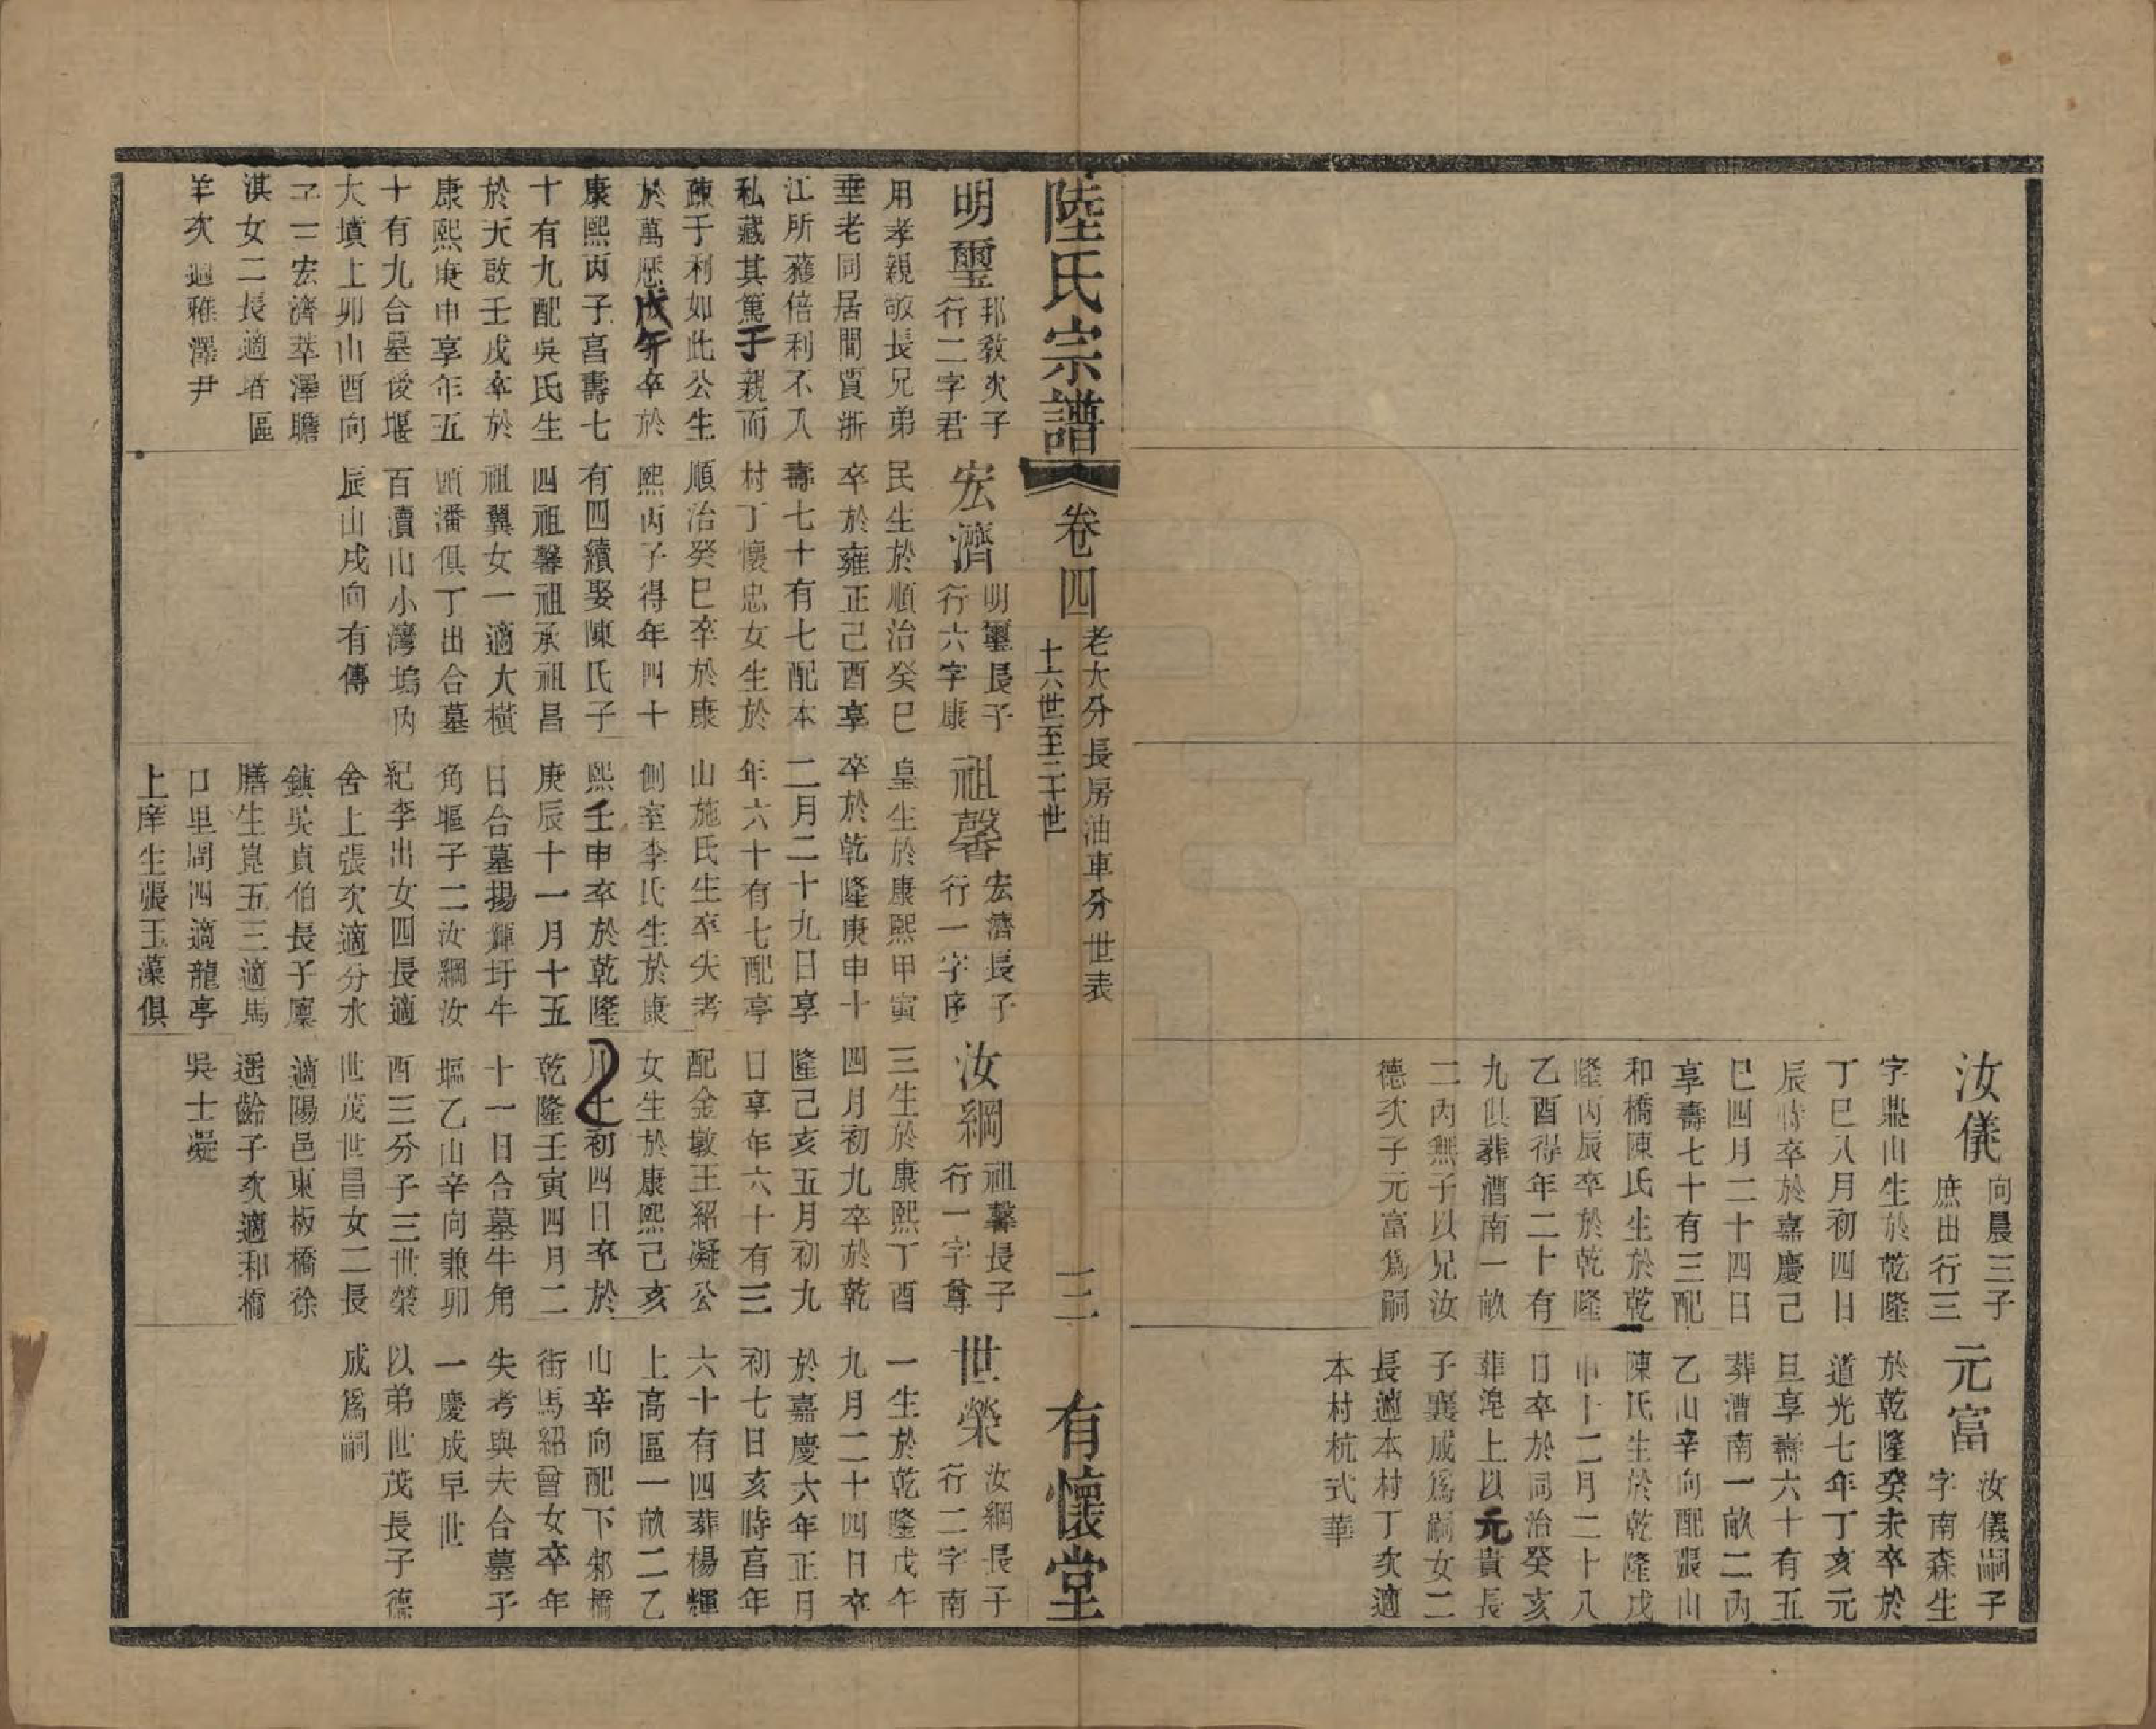 汝儀
向晨三子
庶出行三
字鼎山生於乾隆
丁巳八月初四日
辰時卒於嘉慶己
巳四月二十四日
享壽七十有三配
和橋陳氏生於乾
隆丙辰卒於乾隆
乙酉得年二十有
九俱葬漕南一畝
二丙無子以兄汝
德次子元富爲嗣
元富
汝儀嗣子
字南森生
於乾隆癸未卒於
道光七年丁亥元
旦享壽六十有五
葬漕南一畝二丙
乙山辛向配張山
陳氏生於乾隆戊
申十二月二十八
日卒於同治癸亥
葬滆上以元貴長
子襄成爲嗣女二
長適本村丁次適
本村杭式華
陸氏宗譜
卷四
老大分長房油車分世表
十六世至二十世
三
有懷堂
明璽
邦教次子
行二字君
用孝親敬長兄弟
垂老同居間貿浙
江所獲倍利不入
私藏其篤于親而
疎于利如此公生
於萬歷戊午卒於
康熙丙子享壽七
十有九配吳氏生
於天啟壬戌卒於
康熙庚申享年五
十有九合墓後堰
大墳上卯山酉向
子二宏濟萃澤贍
淇女二長適堵區
羊次適稚澤尹
宏濟
明璽長子
行六字康
民生於順治癸巳
卒於雍正己酉享
壽七十有七配本
村丁懷忠女生於
順治癸巳卒於康
熙丙子得年四十
有四續娶陳氏子
四祖馨祖承祖昌
祖翼女一適大橫
頭潘俱丁出合墓
百瀆山小灣塢內
辰山戌向有傳
祖馨
宏濟長子
行一字序
皇生於康熙甲寅
卒於乾隆庚申十
二月二十九日享
年六十有七配亭
山施氏生卒失考
側室李氏生於康
熙壬申卒於乾隆
庚辰十一月十五
日合墓揚輝圩牛
角塸子二汝綱汝
紀李出女四長適
舍上張次適分水
鎮吳貞伯長子廩
膳生崑五三適馬
口里周四適龍亭
上庠生張玉藻俱
汝綱
祖馨長子
行一字尊
三生於康熙丁酉
四月初九卒於乾
隆己亥五月初九
日享年六十有三
配金墩王紹凝公
女生於康熙己亥
月十初四日卒於
乾隆壬寅四月二
十一日合墓牛角
塸乙山辛向兼卯
酉三分子三世榮
世茂世昌女二長
適陽邑東板橋徐
遥齡子次適和橋
吳士凝
世榮
汝綱長子
行二字南
一生於乾隆戊午
九月二十四日卒
於嘉慶六年正月
初七日亥時享年
六十有四葬楊輝
上高區一畝二乙
山辛向配下邾橋
街馬紹曾女卒年
失考與夫合墓子
一慶成早世
以弟世茂長子德
成爲嗣